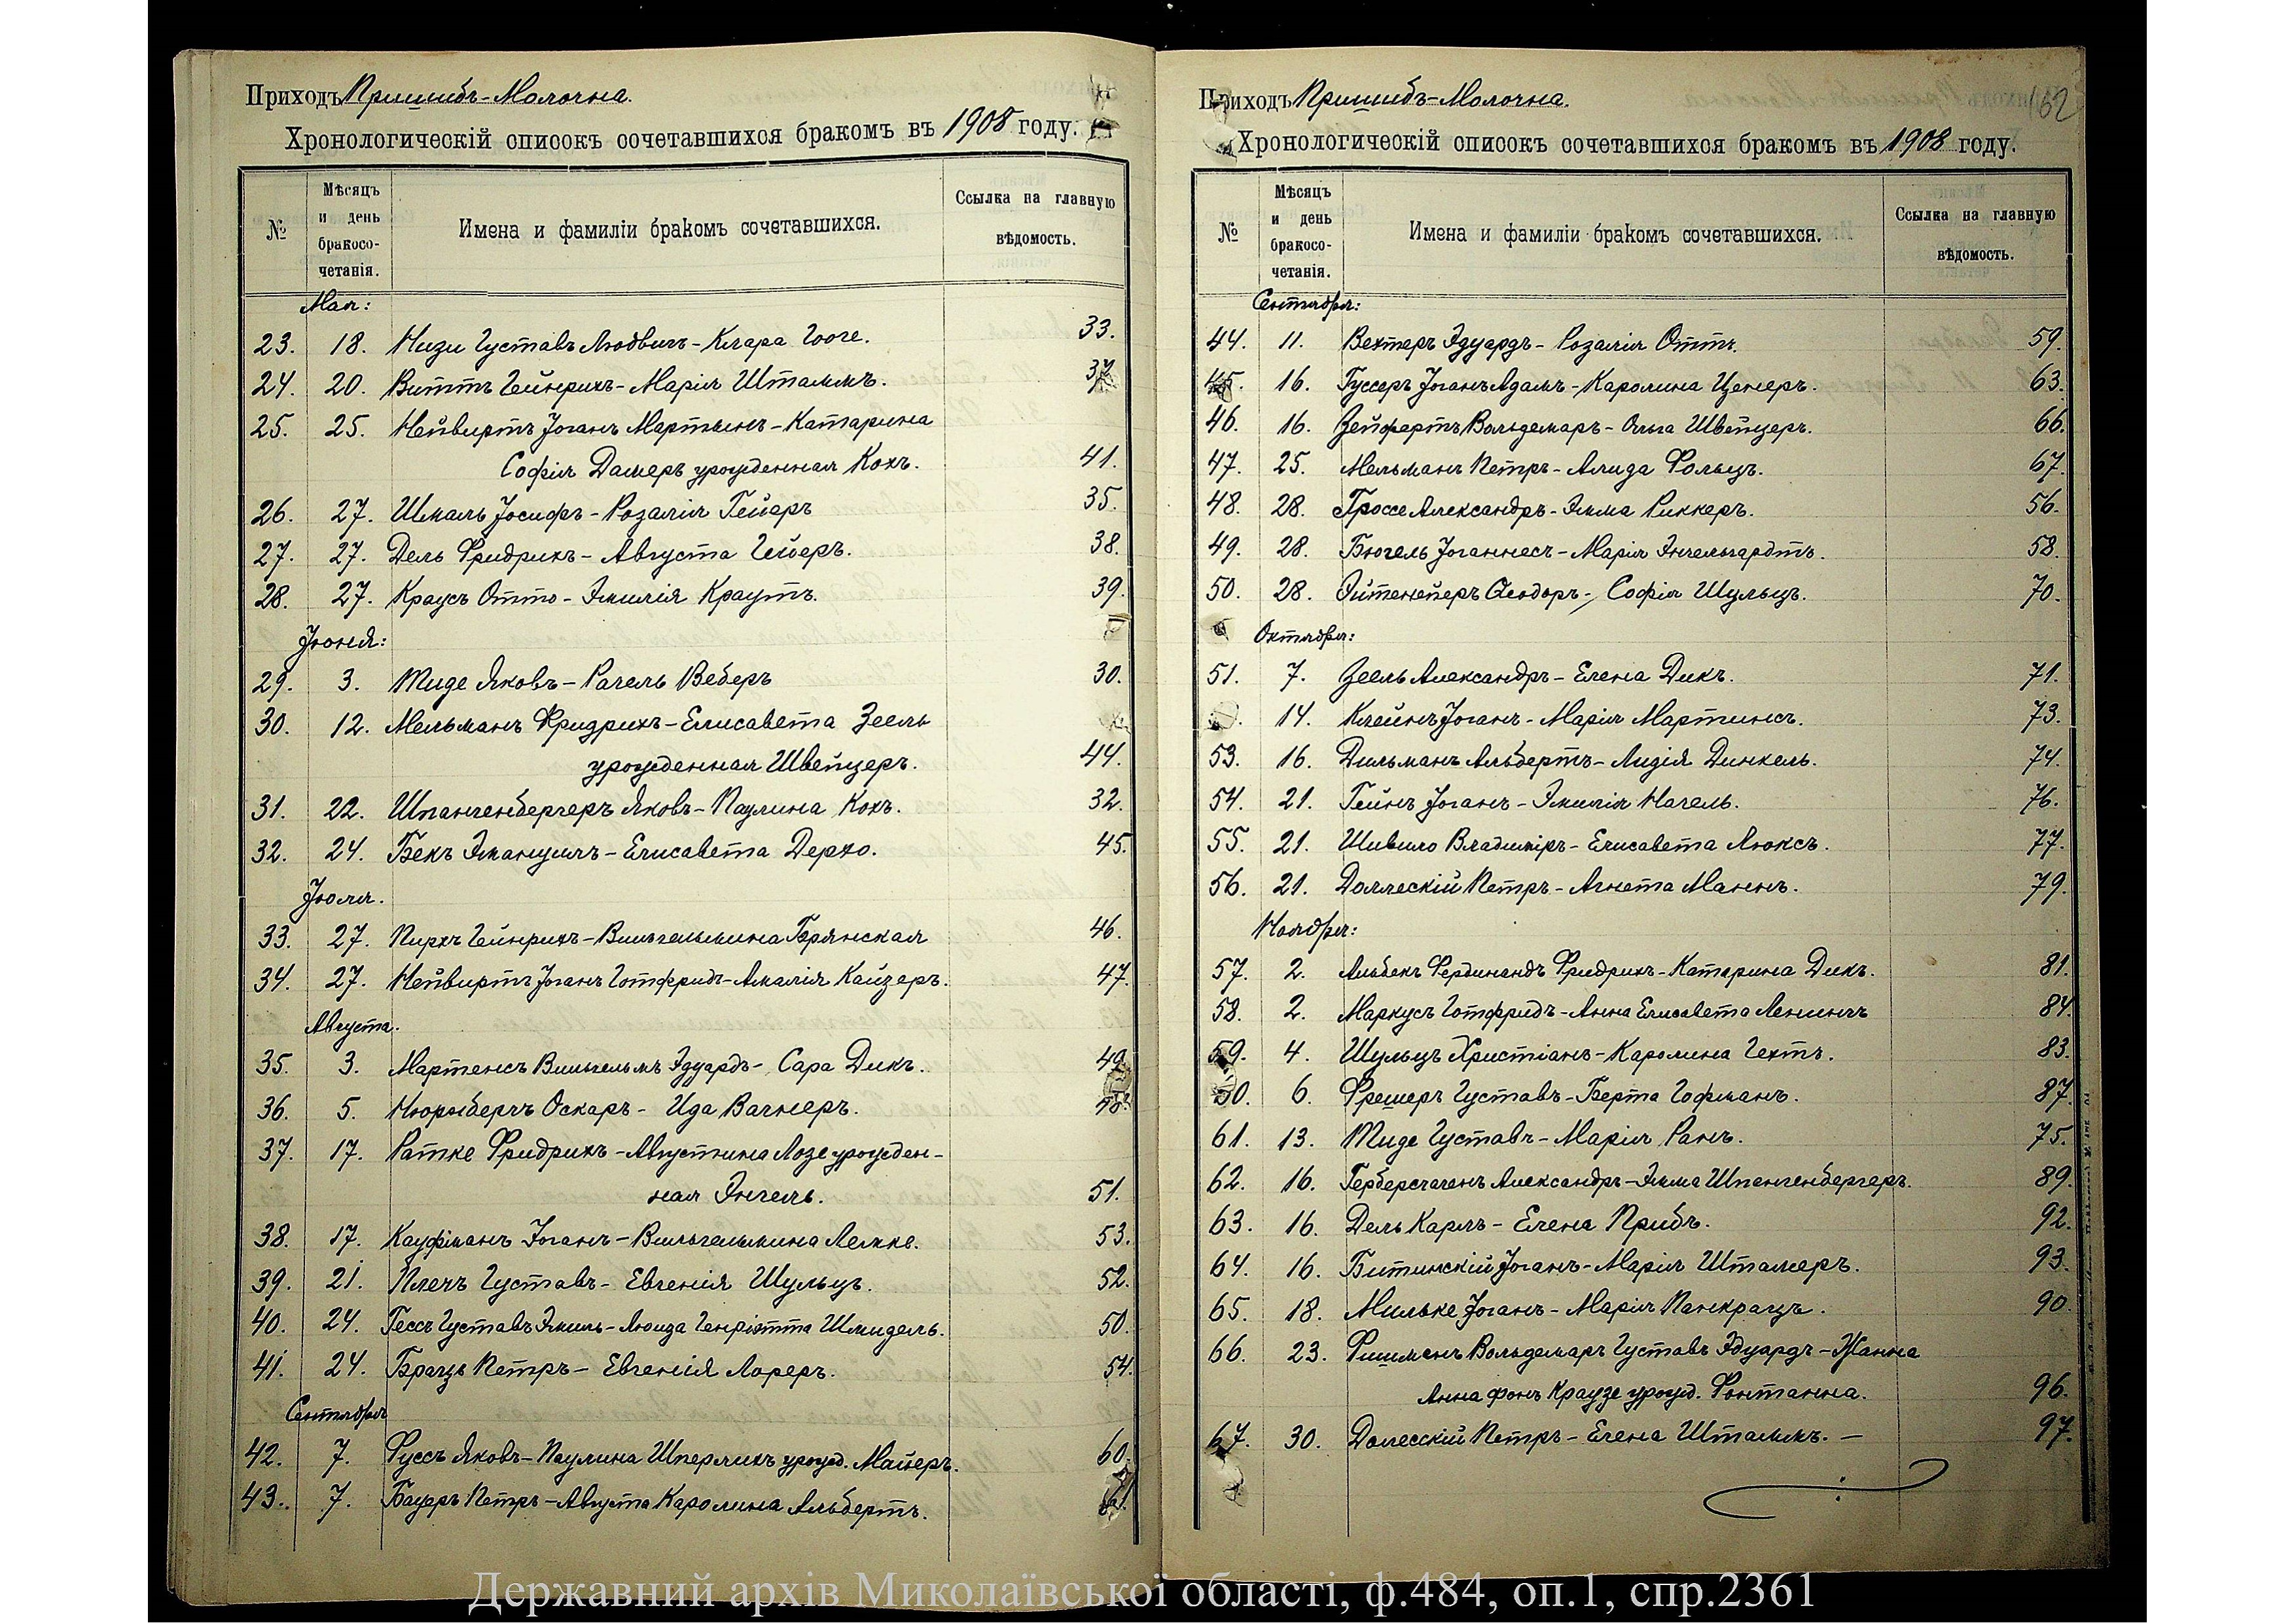 Приходъ Пришибъ-Молочна.
Хронологическій списокъ сочетавшихся бракомъ въ 1908 году.
№
Мѣсяцъ и день бракосо-четанія.
Имена и фамиліи бракомъ сочетавшихся.
Ссылка на главную вѣдомость.
Мая:
23. 18. Низи Густавъ Людвигъ - Клара Гооге. 33.
24. 20. Виттъ Гейнрихъ - Марія Штаммъ. 37
25. 25. Нейвиртъ Іоганъ Мартынъ - Катарина
Софія Дамеръ урожденная Кохъ. 41.
26. 27. Шмаль Іосифъ - Розалія Гейеръ 35.
27. 27. Дель Фридрихъ - Августа Гейеръ. 38.
28. 27. Краусъ Отто - Эмилія Краутъ. 39.
Іюня:
29. 3. Тиде Яковъ - Рахель Веберъ 30.
30. 12. Мельманъ Фридрихъ - Елисавета Зеель
урожденная Швейцеръ. 44.
31. 22. Шпангенбергеръ Яковъ - Паулина Кохъ. 32.
32. 24. Бекъ Эмануилъ - Елисавета Дерхо. 45.
Іюля.
33. 27. Пирхъ Гейнрихъ - Вильгельмина Брянская 46.
34. 27. Нейвиртъ Іоганъ Готфридъ - Амалія Кайзеръ. 47.
Августа.
35. 3. Мартенсъ Вильгельмъ Эдуардъ - Сара Дикъ. 49.
36. 5. Нюрнбергъ Оскаръ - Ида Вагнеръ.
37. 17. Ратке Фридрихъ - Августина Лозе урожден-
ная Энгель. 51.
38. 17. Кауфманъ Іоганъ - Вильгельмина Лемке. 53.
39. 21. Плечъ Густавъ - Евгенія Шульцъ. 52.
40. 24. Гессъ Густавъ Эмиль - Люиза Генріэтта Шмидель. 50.
41. 24. Брацъ Петръ - Евгенія Лореръ. 54.
Сентября
42. 7. Фуссъ Яковъ - Паулина Шперлихъ урожд. Майеръ. 60.
43. 7. Бауеръ Петръ - Августа Каролина Альбертъ.
Приходъ Пришибъ-Молочна. 162
Хронологическій списокъ сочетавшихся бракомъ въ 1908 году.
№
Мѣсяцъ и день бракосо-четанія.
Имена и фамиліи бракомъ сочетавшихся.
Ссылка на главную вѣдомость.
Сентября:
44. 11. Вехтеръ Эдуардъ - Розалія Оттъ. 59.
45. 16. Гуссеръ Іоганъ Адамъ - Каролина Ценеръ. 63.
46. 16. Зейфертъ Вольдемаръ - Ольга Швейцеръ. 66.
47. 25. Мельманъ Петръ - Алида Фольцъ. 67.
48. 28. Гроссе Александръ - Эмма Риккеръ. 56.
49. 28. Бюгель Іоганнесъ - Марія Энгельгардтъ. 58.
50. 28. Эйтенейеръ Ѳеодоръ - Софія Шульцъ. 70.
Октября:
51. 7. Зеель Александръ - Елена Дикъ. 71.
14. Клейнъ Іоганъ - Марія Мартинсъ. 73.
53. 16. Дильманъ Альбертъ - Лидія Динкель. 74.
54. 21. Гейнъ Іоганъ - Эмилія Нагель. 76.
55. 21. Шивило Владиміръ - Елисавета Люксъ. 77.
56. 21. Доллескій Петръ - Агнета Маннъ. 79.
Ноября:
57. 2. Альбекъ Фердинандъ Фридрихъ - Катарина Дикъ. 81.
58. 2. Маркусъ Готфридъ - Анна Елисавета Ленингъ 84.
59. 4. Шульцъ Христіанъ - Каролина Гехтъ. 83.
60. 6. Фрешеръ Густавъ - Берта Гофманъ. 87.
61. 13. Тиде Густавъ - Марія Ранъ. 75.
62. 16. Герберсгагенъ Александръ - Эмма Шпангенбергеръ. 89.
63. 16. Дель Карлъ - Елена Прибъ. 92.
64. 16. Битинскій Іоганъ - Марія Шталлеръ. 93.
65. 18. Мильке Іоганъ - Марія Панкрацъ. 90.
66. 23. Фишманъ Вольдемаръ Густавъ Эдуардъ - Жанна
Анна фонъ Краузе урожд. Фонтанна. 96.
67. 30. Долесскій Петръ - Елена Штаммъ. - 97.
Державний архів Миколаївської області, ф.484, оп.1, спр.2361